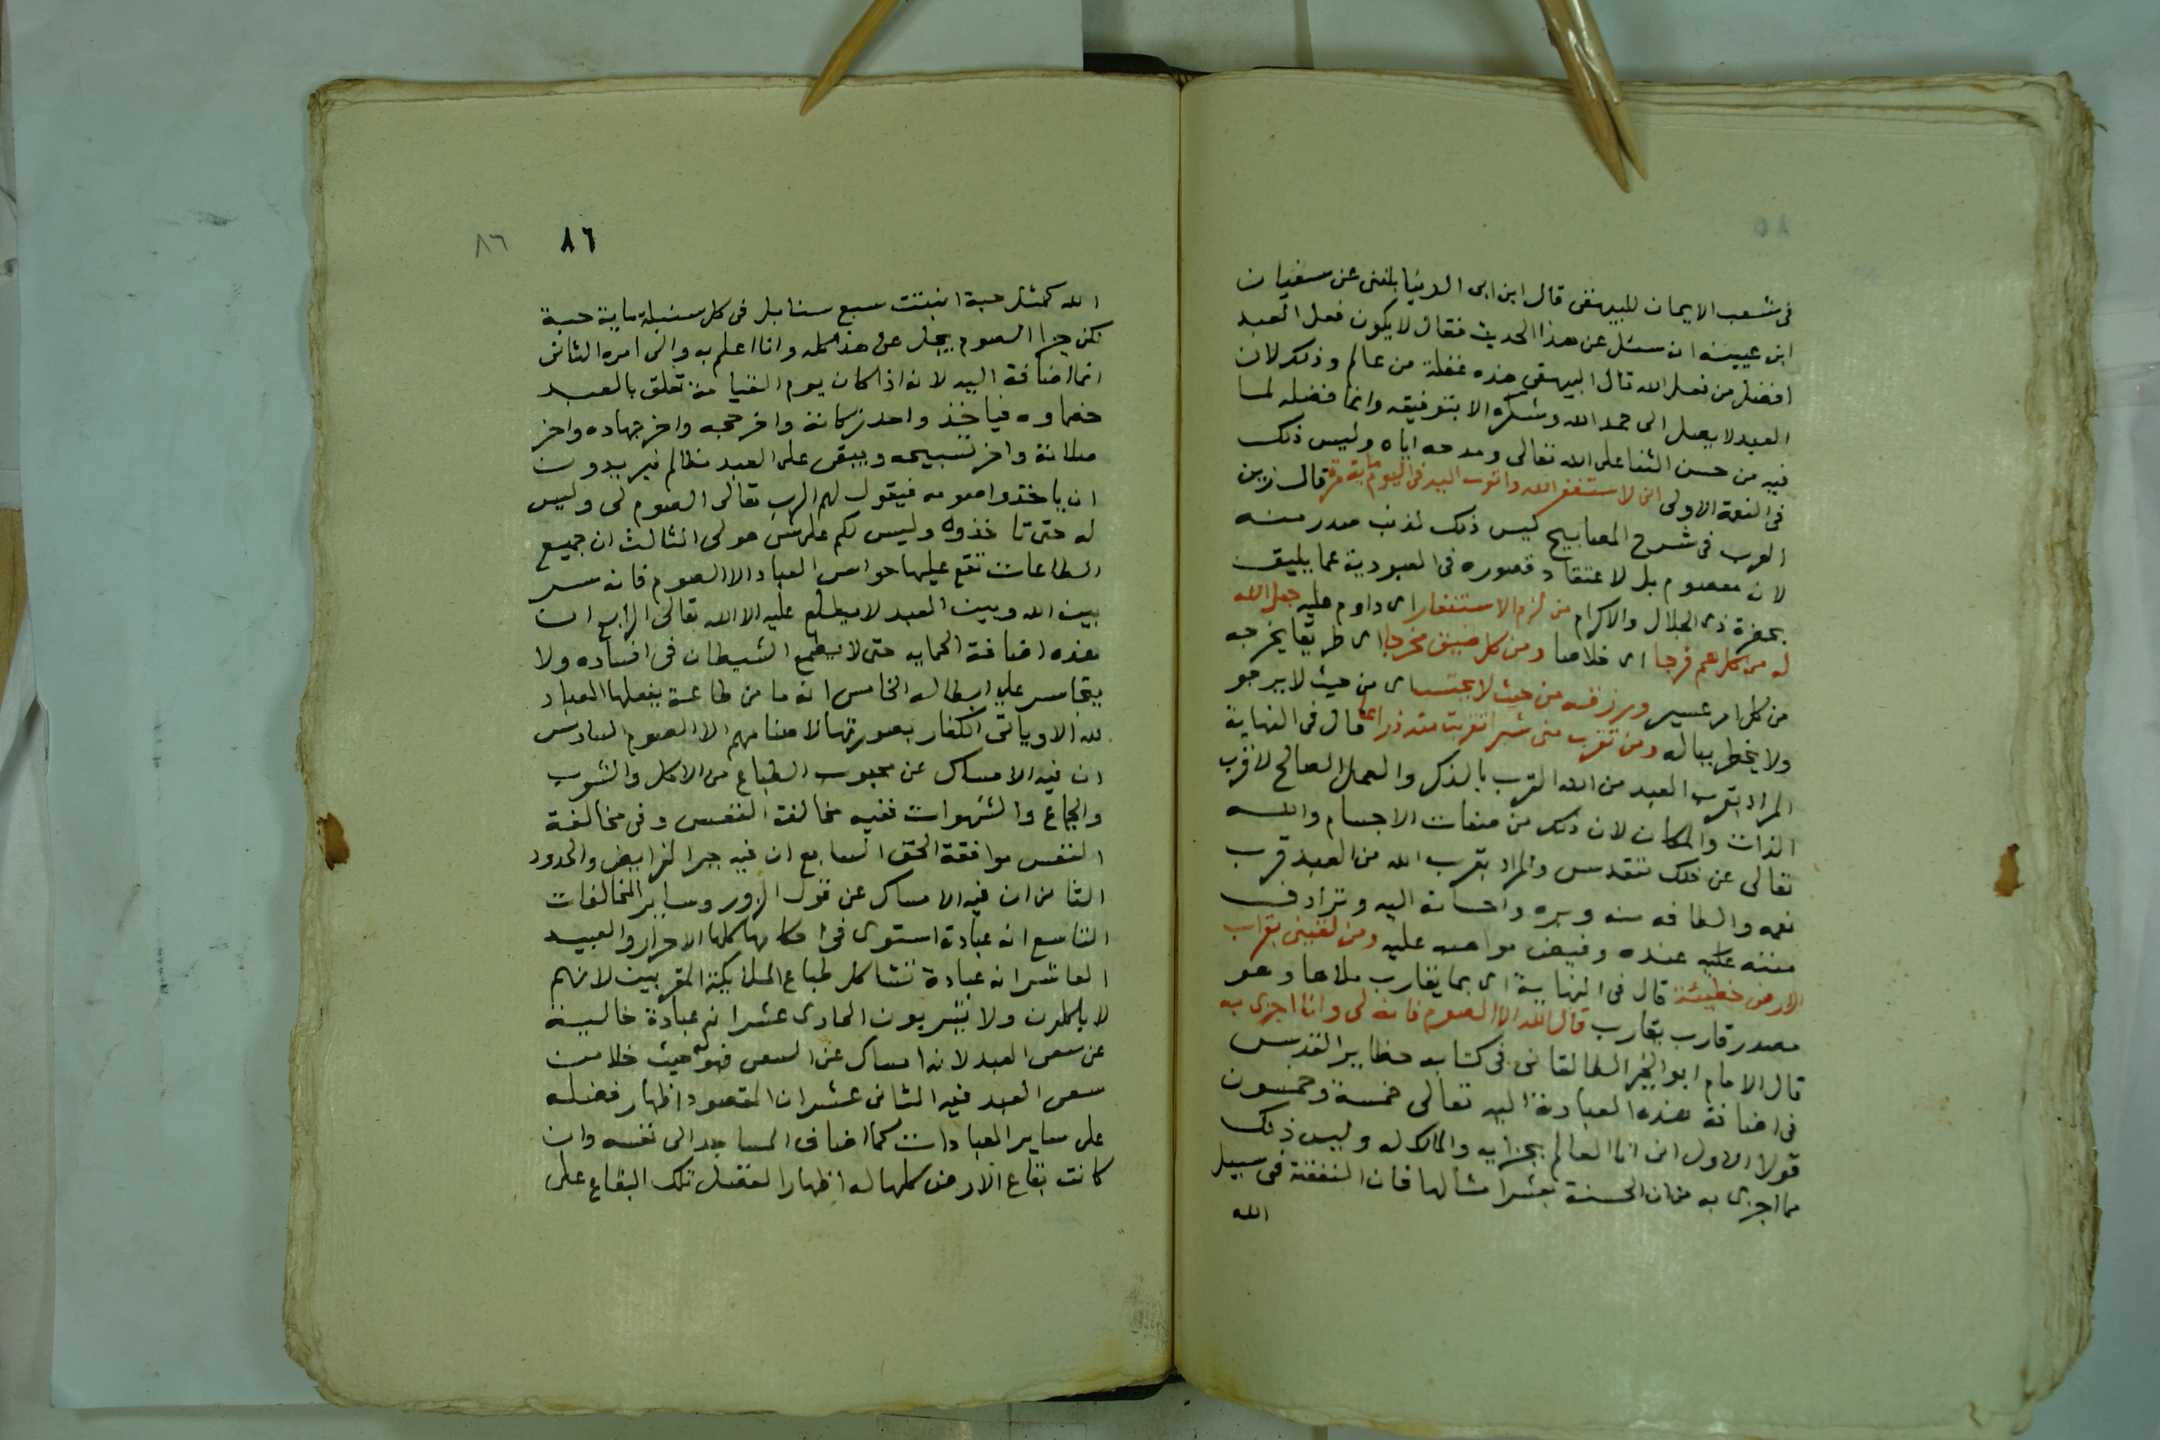 في شعب الايمان للبيهقي قال ابن ابي الدنيا بلغني عن سفيان
ابن عيينه انه سئل عن هذا الحديث فقال لا يكون فعل العبد
افضل من فعل الله قال البيهقي هذه غفلة من عالم وذلك لان
العبد لا يصل الى حمد الله وشكره الا بتوفيقه وانما فضله لما
فيه من حسن الثنا على الله تعالى ومدحه اياه وليس ذلك
في النعمة الاولى اني لاستغفر الله واتوب اليه في اليوم ماية مرة قال زين
العرب في شرح المصابيح ليس ذلك لذنب صدر منه
لانه معصوم بل لاعتقاد قصوره في العبودية عما يليق
بحضرة ذي الجلال والاكرام من لزم الاستغفار اي داوم عليه جعل الله
له من كل هم فرجا اي خلاصا ومن كل ضيق مخرجا اي طريقا يخرجه
من كل امر عسير ويرزقه من حيث لا يحتسب اي من حيث لا يرجو
ولا يخطر بباله ومن تقرب مني شبرا تقربت منه ذراعا قال في النهاية
المراد بقرب العبد من الله القرب بالذكر والعمل الصالح لا قرب
الذات والمكان لان ذلك من صفات الاجسام والله
تعالى عن ذلك تتقدس والمراد بقرب الله من العبد قرب
نعمه والطافه منه وبره واحسانه اليه وترادف
مننه عليه عنده وفيض مواهبه عليه ومن لقيني بقراب
الارض خطيئة قال في النهاية اي بما يقارب ملاها وهو
مصدر قارب يقارب قال الله الا الصوم فانه لي وانا اجزي به
قال الامام ابو الخير الطالقاني في كتابه حظاير القدس
في اضافة هذه العبادة اليه تعالى خمسة وخمسون
قولا الاول اني انا العالم بجزايه والمالك له وليس ذلك
مما اجزي به من ان الحسنة بعشر امثالها فان النفقة في سبيل
الله
٨٦ ٨٦
الله كمثل حبة انبتت سبع سنابل في كل سنبلة ماية حبة
لكن جزا الصوم يجل عن هذا كله وانا اعلم به والي امره الثاني
انما اضافة اليه لانه اذا كان يوم القيامة تعلق بالعبد
خصماوه فياخذ واحد زكاته واخر حجه واخر جهاده واخر
صلاته واخر تسبيحه ويبقى على العبد مظالم فيريدون
ان ياخذوا صومه فيقول لهم الرب تعالى الصوم لي وليس
له حتى تاخذوه وليس لكم على شي هو لي الثالث ان جميع
الطاعات تقع عليها حواس العباد الا الصوم فانه سر
بين الله وبين العبد لا يطلع عليه الا الله تعالى الرابع ان
هذه اضافة الحمايه حتى لا يطمع الشيطان في افساده ولا
يتجاسر على ابطاله الخامس انه ما من طاعة يفعلها العباد
لله الا وياتي الكفار بصورتها لاصنامهم الا الصوم السادس
ان فيه الامساك عن محبوب الطباع من الاكل والشرب
والجماع والشهوات ففيه مخالفة النفس وفي مخالفة
النفس موافقة الحق السابع ان فيه جبر الفرايض والحدود
الثامن ان فيه الامساك عن قول الزور وساير المخالفات
التاسع انه عبادة استوى في احكامها كلها الاحرار والعبيد
العاشر انه عبادة تشاكل طباع الملايكة المقربين لانهم
لا ياكلون ولا يشربون الحادي عشر انه عبادة خالية
عن سعي العبد لانه امساك عن السعي فهو حيث خلا من
سعي العبد فيه الثاني عشر ان المقصود اظهار فضله
على ساير العبادات كما اضاف المساجد الى نفسه وان
كانت بقاع الارض كلها له اظهارا لفضل تلك البقاع على